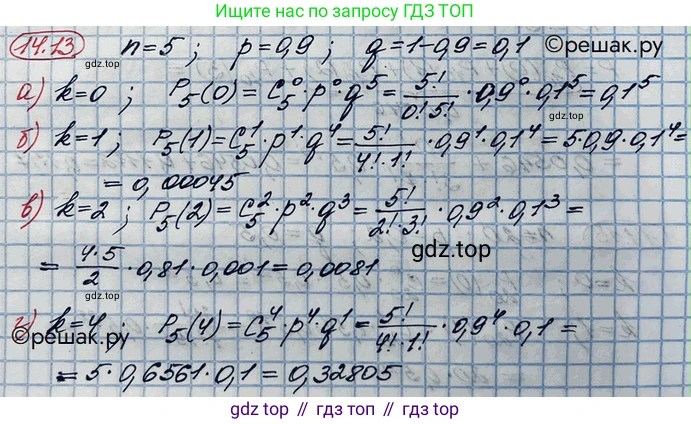 Ищите нас по запросу ГДЗ ТОП
14.13 n=5 ; p=0,9 ; q=1-0,9=0,1 ©решак.ру
gdz.top
а) k=0 ; P₅(0)=C₅⁰·p⁰·q⁵=5!/(0!5!)·0,9⁰·0,1⁵=0,1⁵
б) k=1 ; P₅(1)=C₅¹·p¹·q⁴=5!/(4!·1!)·0,9¹·0,1⁴=5·0,9·0,1⁴=
=0,00045
в) k=2 ; P₅(2)=C₅²·p²·q³=5!/(2!·3!)·0,9²·0,1³=
=(4·5)/2·0,81·0,001=0,0081
gdz.top
gdz.top
г) k=4 ; P₅(4)=C₅⁴·p⁴·q¹=5!/(4!·1!)·0,9⁴·0,1=
©решак.ру
=5·0,6561·0,1=0,32805
gdz.top // гдз топ // гдз.топ